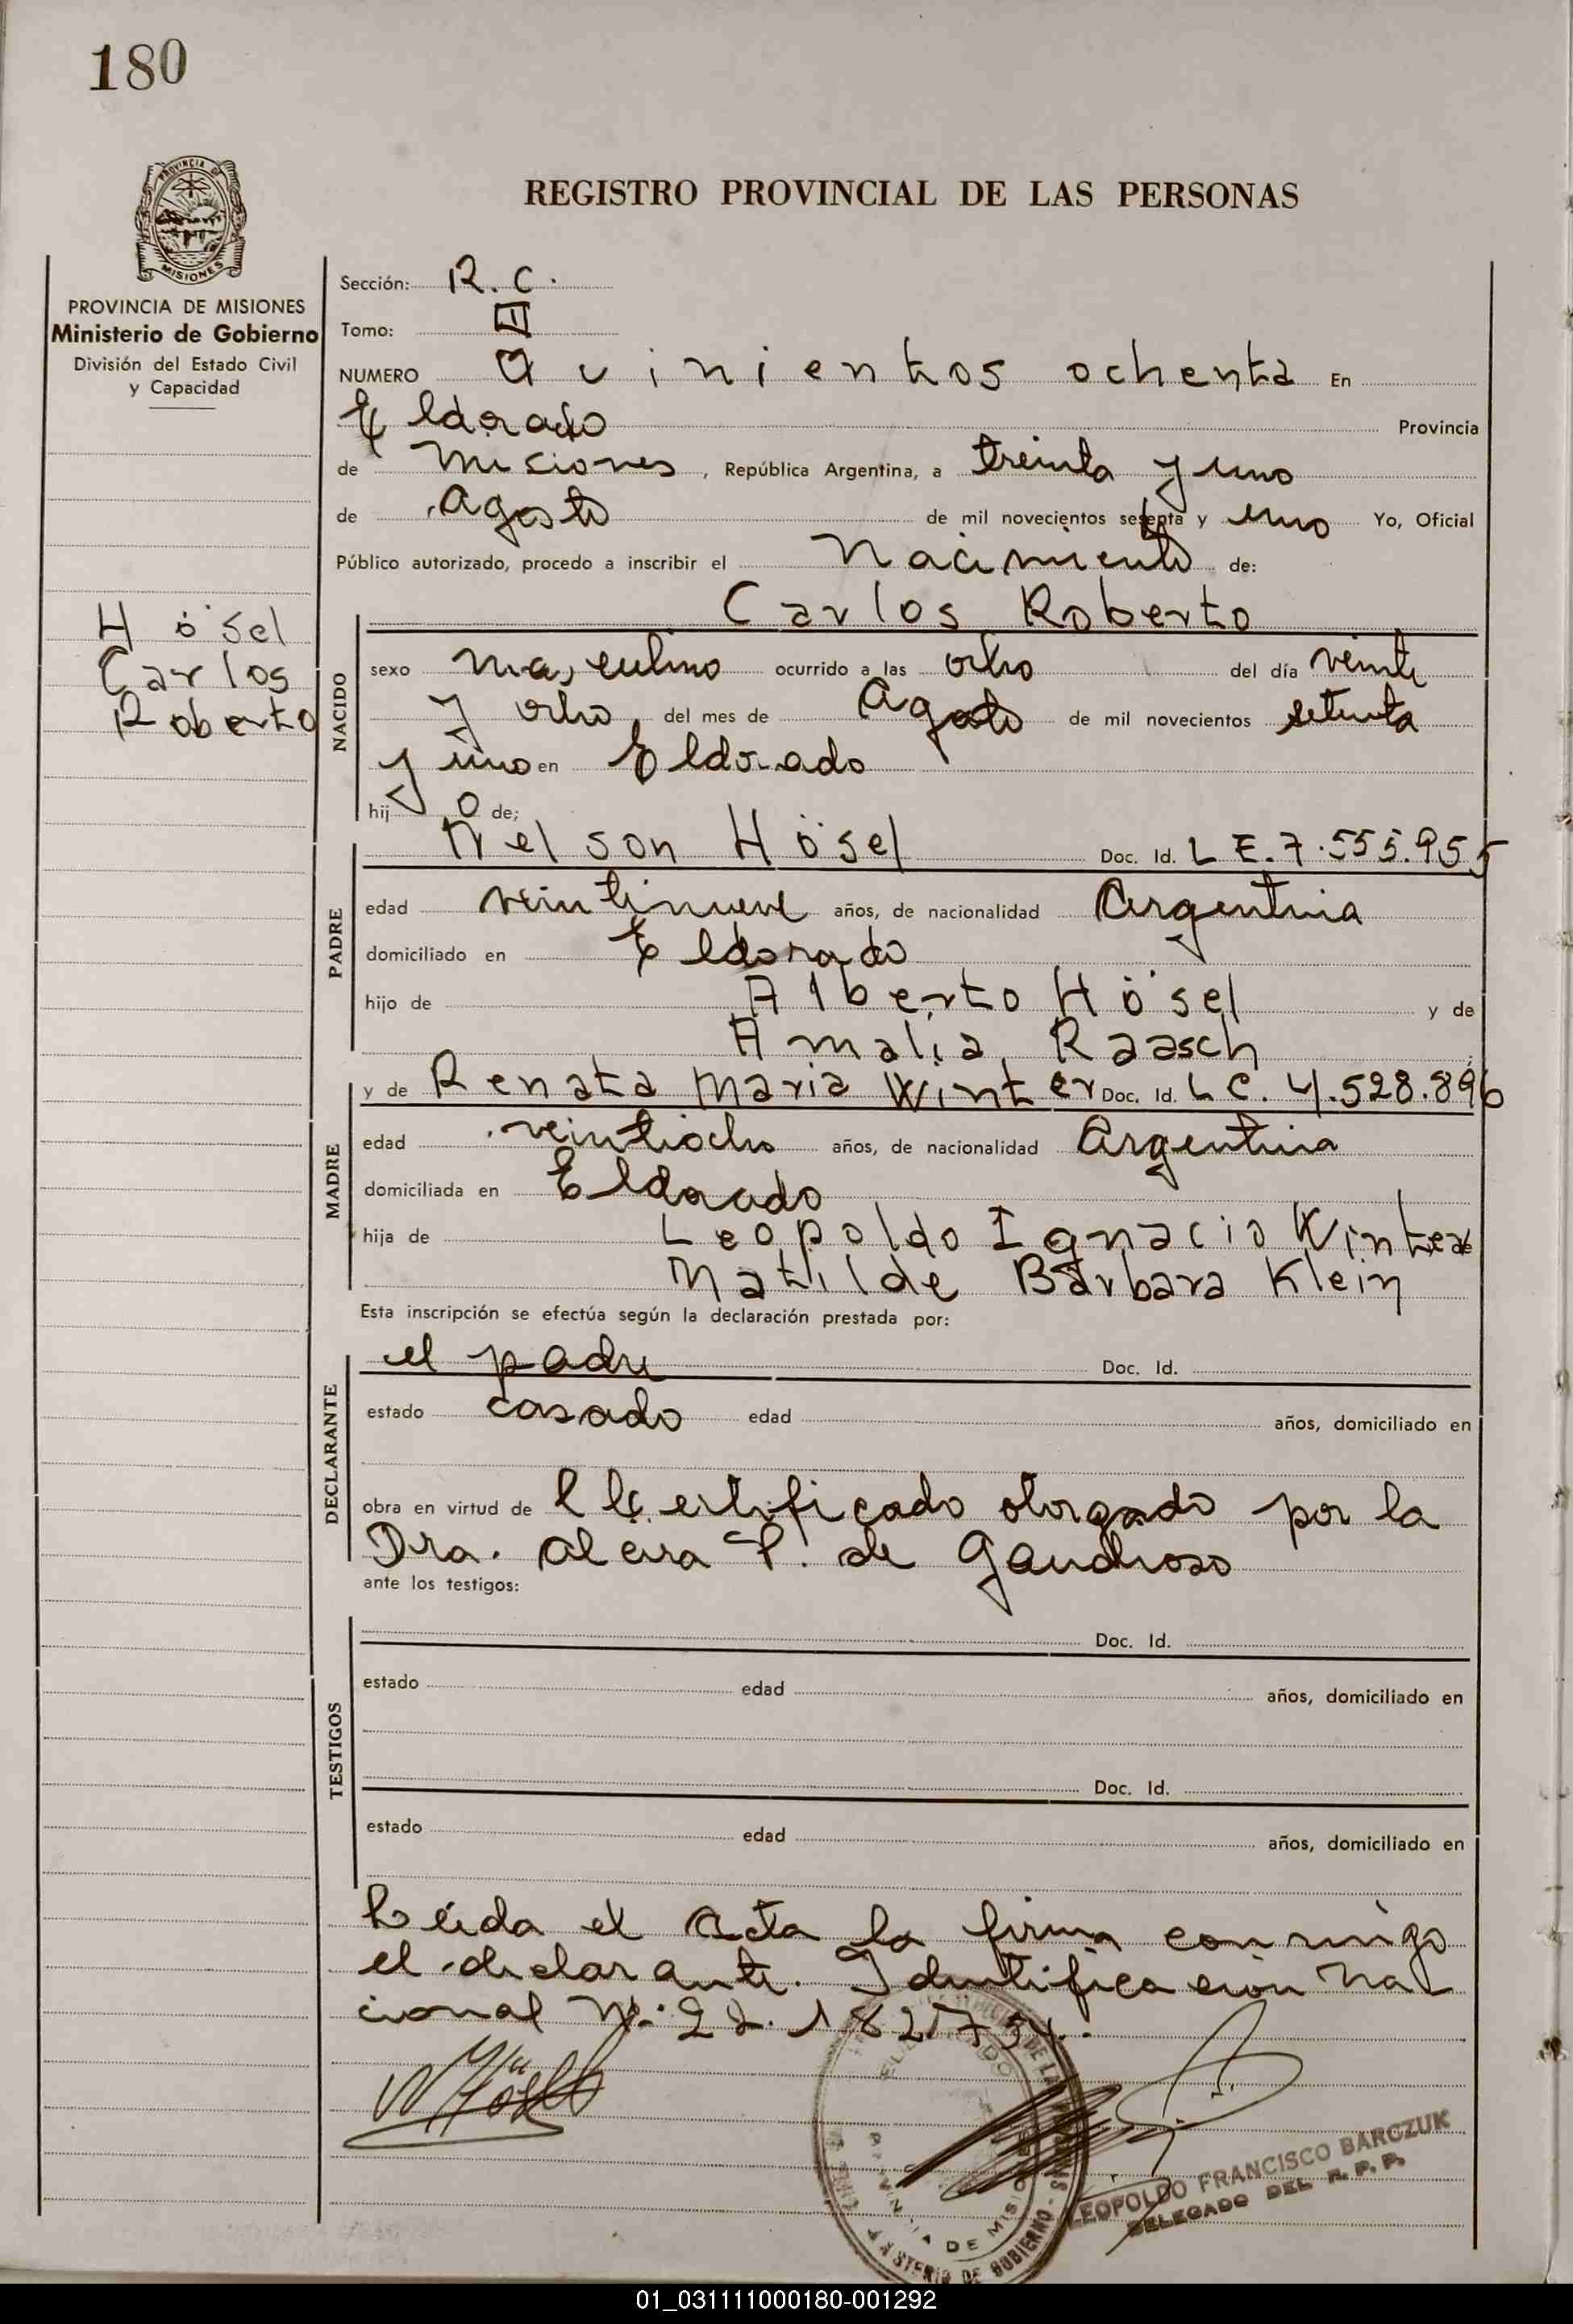 180
PROVINCIA DE
MISIONES
REGISTRO PROVINCIAL DE LAS PERSONAS
PROVINCIA DE MISIONES
Ministerio de Gobierno
División del Estado Civil
y Capacidad
Hösel
Carlos
Roberto
Sección: R. C.
Tomo: III
NUMERO Quinientos ochenta En
Eldorado Provincia
de Misiones, República Argentina, a treinta y uno
de Agosto de mil novecientos setenta y uno Yo, Oficial
Público autorizado, procedo a inscribir el Nacimiento de:
Carlos Roberto
NACIDO
sexo masculino ocurrido a las ocho del día veinte
y ocho, del mes de Agosto de mil novecientos setenta
y uno en Eldorado
hijo de;
PADRE
Nelson Hösel Doc. Id. L E. 7.555.955
edad veintinueve años, de nacionalidad Argentina
domiciliado en Eldorado
hijo de Alberto Hösel y de
Amalia Raasch
MADRE
y de Renata Maria Winter Doc. Id. L C. 4.528.896
edad veintiocho años, de nacionalidad Argentina
domiciliada en Eldorado
hija de Leopoldo Ignacio Winter
Matilde Bárbara Klein
Esta inscripción se efectúa según la declaración prestada por:
DECLARANTE
el padre Doc. Id.
estado casado edad años, domiciliado en
obra en virtud de l Certificado otorgado por la
Dra. Alcira P. de Gandroso
ante los testigos:
TESTIGOS
Doc. Id.
estado edad años, domiciliado en
Doc. Id.
estado edad años, domiciliado en
Leída el Acta la firma conmigo
el declarante. Identificación Na
cional Nº: 22.
N Hösel
ELDORADO
PROVINCIA DE MISIONES
MINISTERIO DE GOBIERNO
LEOPOLDO FRANCISCO BARCZUK
DELEGADO DEL R. P. P.
01_031111000180-001292